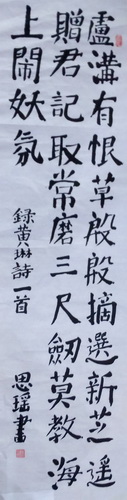 盧溝有恨草殷殷摘選新芝遥
贈君記取常磨三尺劒莫教海
上鬧妖氛
録黄琳詩一首
思瑶書